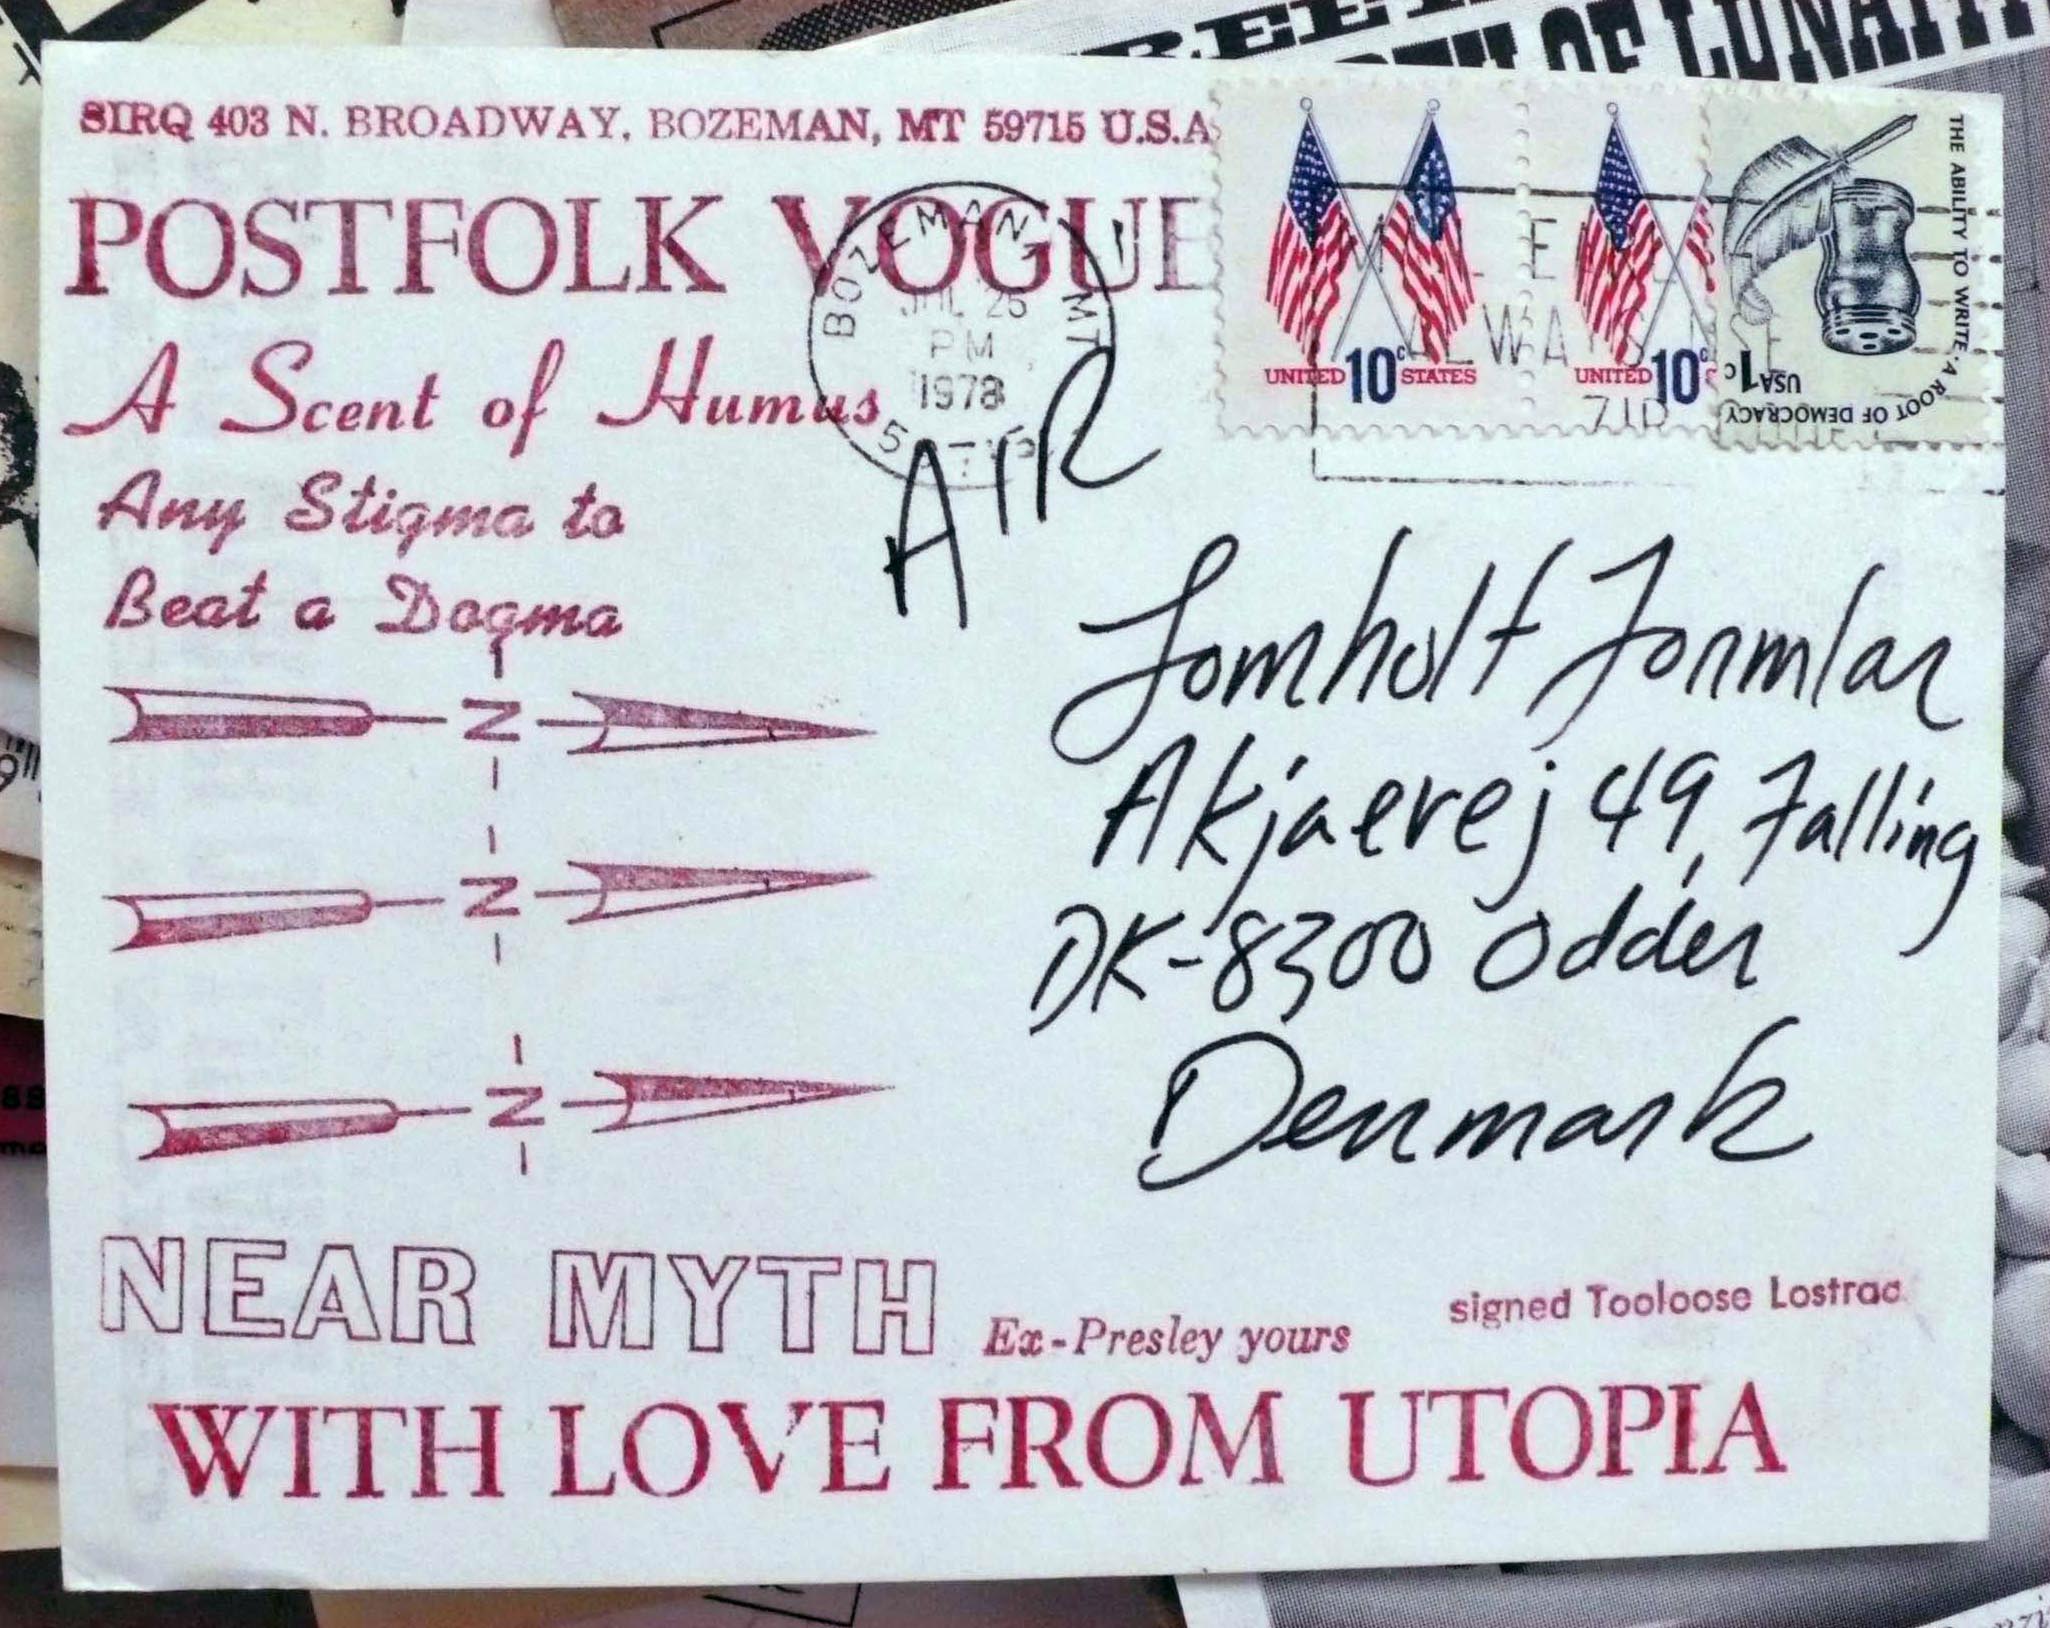 SIRQ 403 N. BROADWAY, BOZEMAN, MT 59715 U.S.A.
POSTFOLK VOGUE
A Scent of Humus
Any Stigma to
Beat a Dogma
N
N
N
NEAR MYTH
Ex-Presley yours
signed Tooloose Lostrac
WITH LOVE FROM UTOPIA
BOZEMAN, MT
JUL 25
PM
1978
AIR
UNITED 10c STATES
UNITED 10c
THE ABILITY TO WRITE · A ROOT OF DEMOCRACY
USA 1c
ALWAYS
ZIP
Lomholt Formlar
Akjaerej 49, Falling
DK-8300 Odder
Denmark
OF LUNA